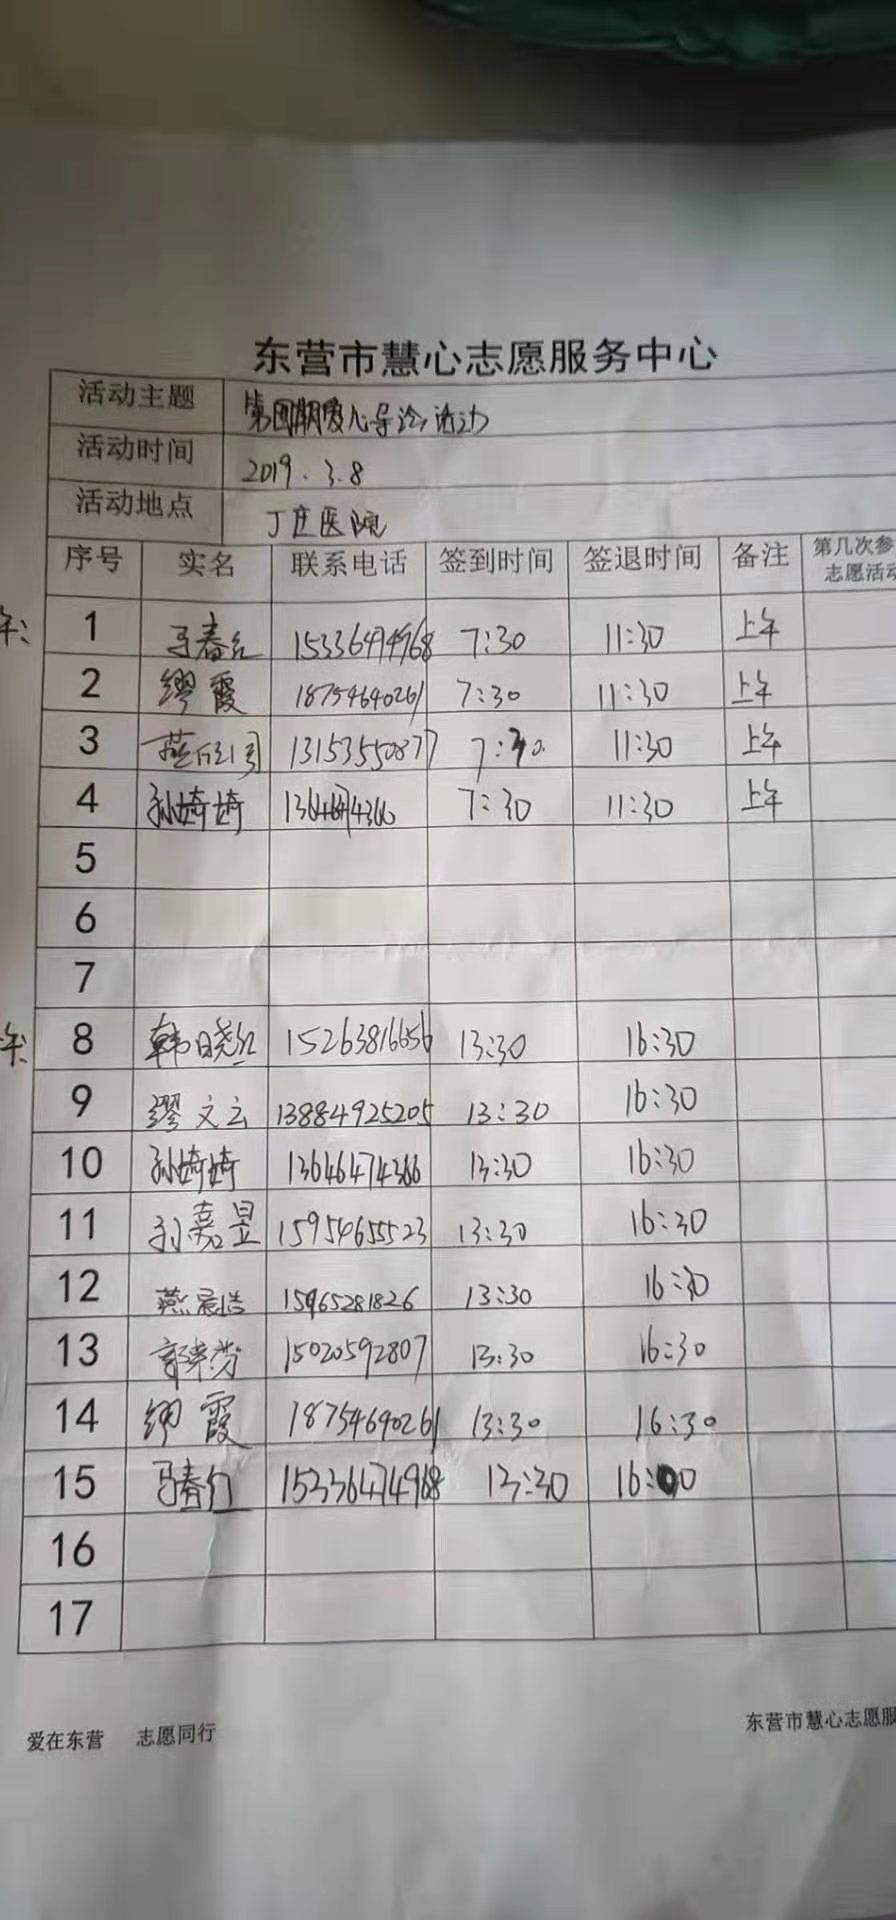 东营市慧心志愿服务中心
活动主题 第四期爱心导诊活动
活动时间 2019.3.8
活动地点 丁庄医院
序号 实名 联系电话 签到时间 签退时间 备注 第几次参
志愿活动
午:
1 马春红 15336474968 7:30 11:30 上午
2 缪霞 18754640261 7:30 11:30 上午
3 13153550877 7:30 11:30 上午
4 孙婍婍 7:30 11:30 上午
5
6
7
午:
8 韩晓红 15263816656 13:30 16:30
9 缪文云 13884925205 13:30 16:30
10 孙婍婍 13646474366 13:30 16:30
11 孙嘉昱 15954655523 13:30 16:30
12 燕宸浩 15965281826 13:30 16:30
13 15020592807 13:30 16:30
14 缪霞 18754640261 13:30 16:30
15 马春红 15336474968 13:30
16
17
爱在东营 志愿同行
东营市慧心志愿服